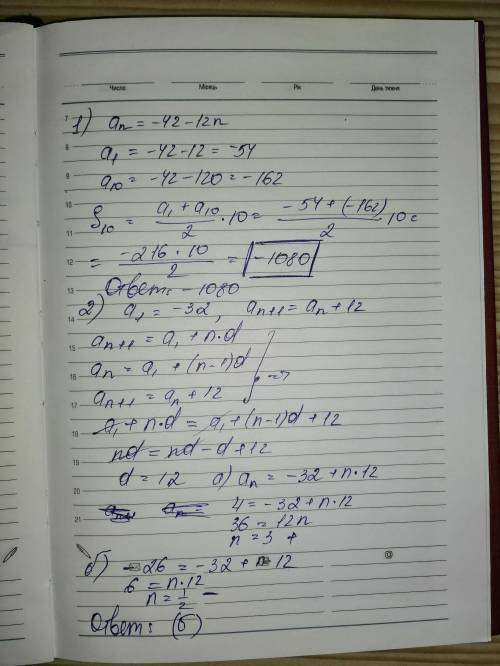 Число Місяць Рік День тижня
1) an = -42-12n
a1 = -42-12 = -54
a10 = -42-120 = -162
S10 = (a1 + a10)/2 · 10 = (-54 + (-162))/2 10 =
= (-216 · 10)/2 = -1080
Ответ: -1080
2) a1 = -32, an+1 = an + 12
an+1 = a1 + n·d
an = a1 + (n-1)d
an+1 = an + 12 } =>
a1 + n·d = a1 + (n-1)d + 12
nd = nd - d + 12
d = 12 а) an = -32 + n·12
4 = -32 + n·12
36 = 12n
n = 3 +
б) -26 = -32 + n·12
6 = n·12
n = 1/2 -
Ответ: (б)